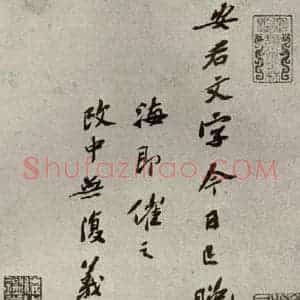 安君文字今日已
海即催之
改中無復義
Shufaziliao.com